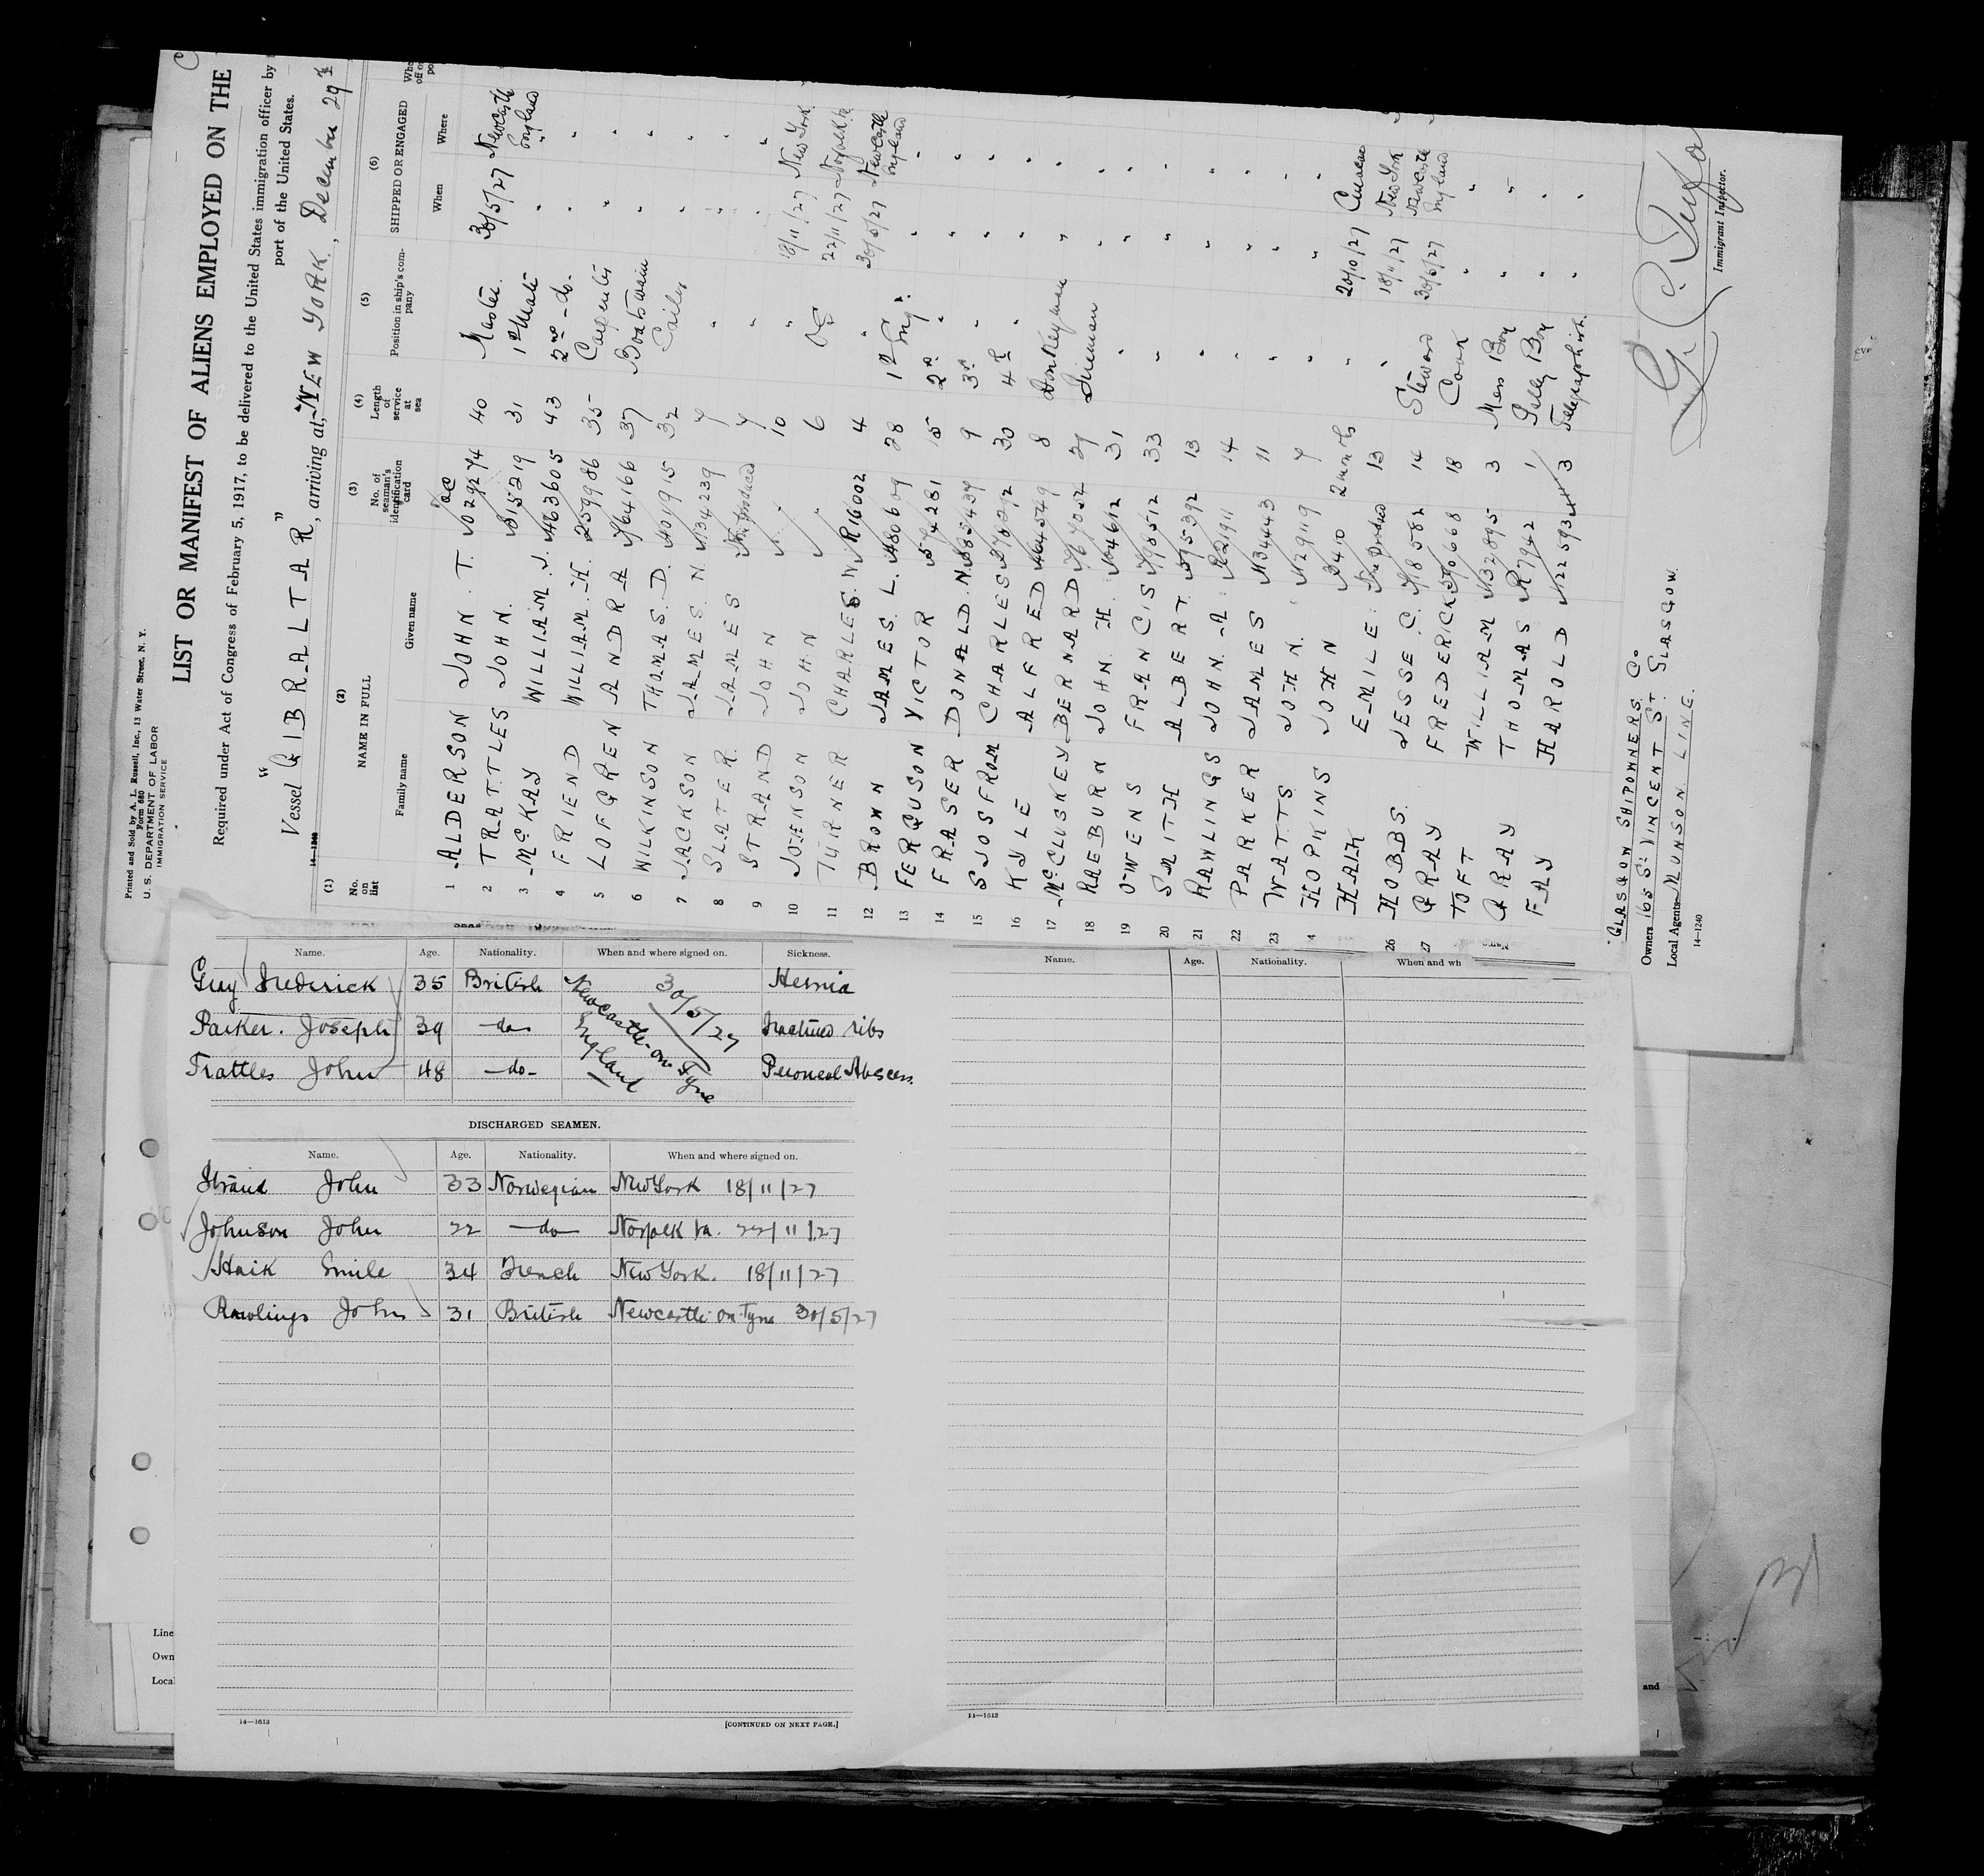 Printed and Sold by A. L. Russell, Inc., 13 Water Street, N. Y.
Form 680
U. S. DEPARTMENT OF LABOR
IMMIGRATION SERVICE
LIST OR MANIFEST OF ALIENS EMPLOYED ON THE
Required under Act of Congress of February 5, 1917, to be delivered to the United States immigration officer by
port of the United States.
Vessel "GIBRALTAR", arriving at NEW YORK, December 29th
(1) No. on list (2) NAME IN FULL Family name Given name (3) No. of seaman's identification card (4) Length of service at sea (5) Position in ship's company (6) SHIPPED OR ENGAGED When Where
1 ALDERSON JOHN. T. 40 Master 30/5/27 Newcastle England
2 TRATTLES JOHN. 815219 31 1st Mate " "
3 McKAY WILLIAM. J. 463605 43 2nd do. " "
4 FRIEND WILLIAM. H. 259986 35 Carpenter " "
5 LOFGREN ANDRA 764166 37 Boatswain " "
6 WILKINSON THOMAS. D. 32 Sailor " "
7 JACKSON JAMES. N. 7 " " "
8 SLATER JAMES 7 " " "
9 STRAND JOHN 10 " 18/11/27 New York
10 JOHNSON JOHN 6 OS 22/11/27 Norfolk Va
11 TURNER CHARLES. W. R16002 4 " 30/5/27 Newcastle England
12 BROWN JAMES. L. 486609 28 1st Eng. " "
13 FERGUSON VICTOR 15 2nd " " "
14 FRASER DONALD. N. 9 3rd " " "
15 SJOSFROM CHARLES 30 4th " " "
16 KYLE ALFRED 464549 8 Donkeyman " "
17 McCLUSKEY BERNARD 27 Fireman " "
18 RAEBURN JOHN. H. 31 " " "
19 OWENS FRANCIS 798512 33 " " "
20 SMITH ALBERT. 13 " " "
21 RAWLINGS JOHN. A. 14 " " "
22 PARKER JAMES 11 " " "
23 WATTS JOHN. 7 " " "
4 HOPKINS JOHN 2 months " 20/10/27
HAIK EMILE. 13 " 18/11/27 New York
26 HOBBS. JESSE. C. 14 Steward 30/5/27 Newcastle England
27 GRAY FREDERICK 18 Cook " "
TOFT WILLIAM 3 Mess Boy " "
GRAY THOMAS R7942 1 Galley Boy " "
FAY HAROLD 3 Telegraphist. " "
Owners GLASGOW SHIPOWNERS Co
165 St VINCENT St. GLASGOW.
Local Agents MUNSON LINE.
14—1240
Immigrant Inspector.
Name. Age. Nationality. When and where signed on. Sickness.
Gray Frederick 35 British Newcastle-on-Tyne England 30/5/27 Hernia
Parker. Joseph 39 —do— Fractured ribs
Trattles John 48 —do— Abscess.
DISCHARGED SEAMEN.
Name. Age. Nationality. When and where signed on.
Strand John 33 Norwegian New York 18/11/27
Johnson John 22 —do— Norfolk Va. 22/11/27
Haik Emile 34 French New York. 18/11/27
Rawlings John 31 British Newcastle-on-Tyne 30/5/27
14—1613
[CONTINUED ON NEXT PAGE.]
Name. Age. Nationality. When and wh
14—1613
Line
Own
Local
and